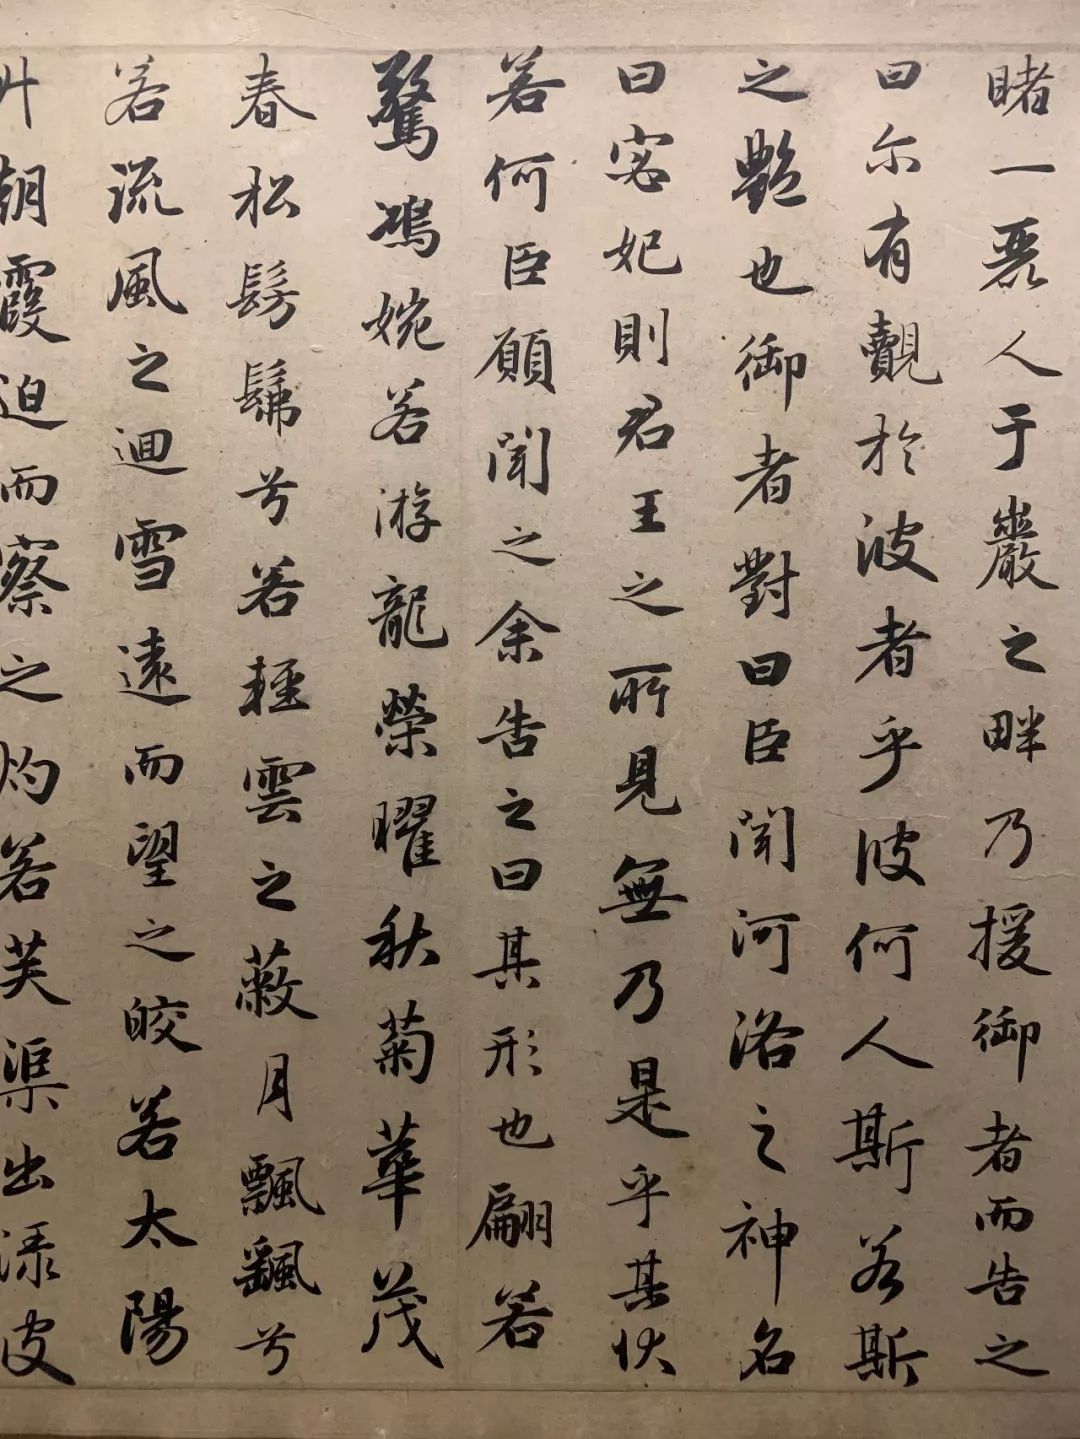 睹一麗人于巖之畔乃援御者而告之
曰尔有觀於彼者乎彼何人斯若斯
之艷也御者對曰臣聞河洛之神名
曰宓妃則君王之所見無乃是乎其狀
若何臣願聞之余告之曰其形也翩若
驚鴻婉若游龍榮曜秋菊華茂
春松髣髴兮若輕雲之蔽月飄颻兮
若流風之迴雪遠而望之皎若太陽
升朝霞迫而察之灼若芙渠出淥波